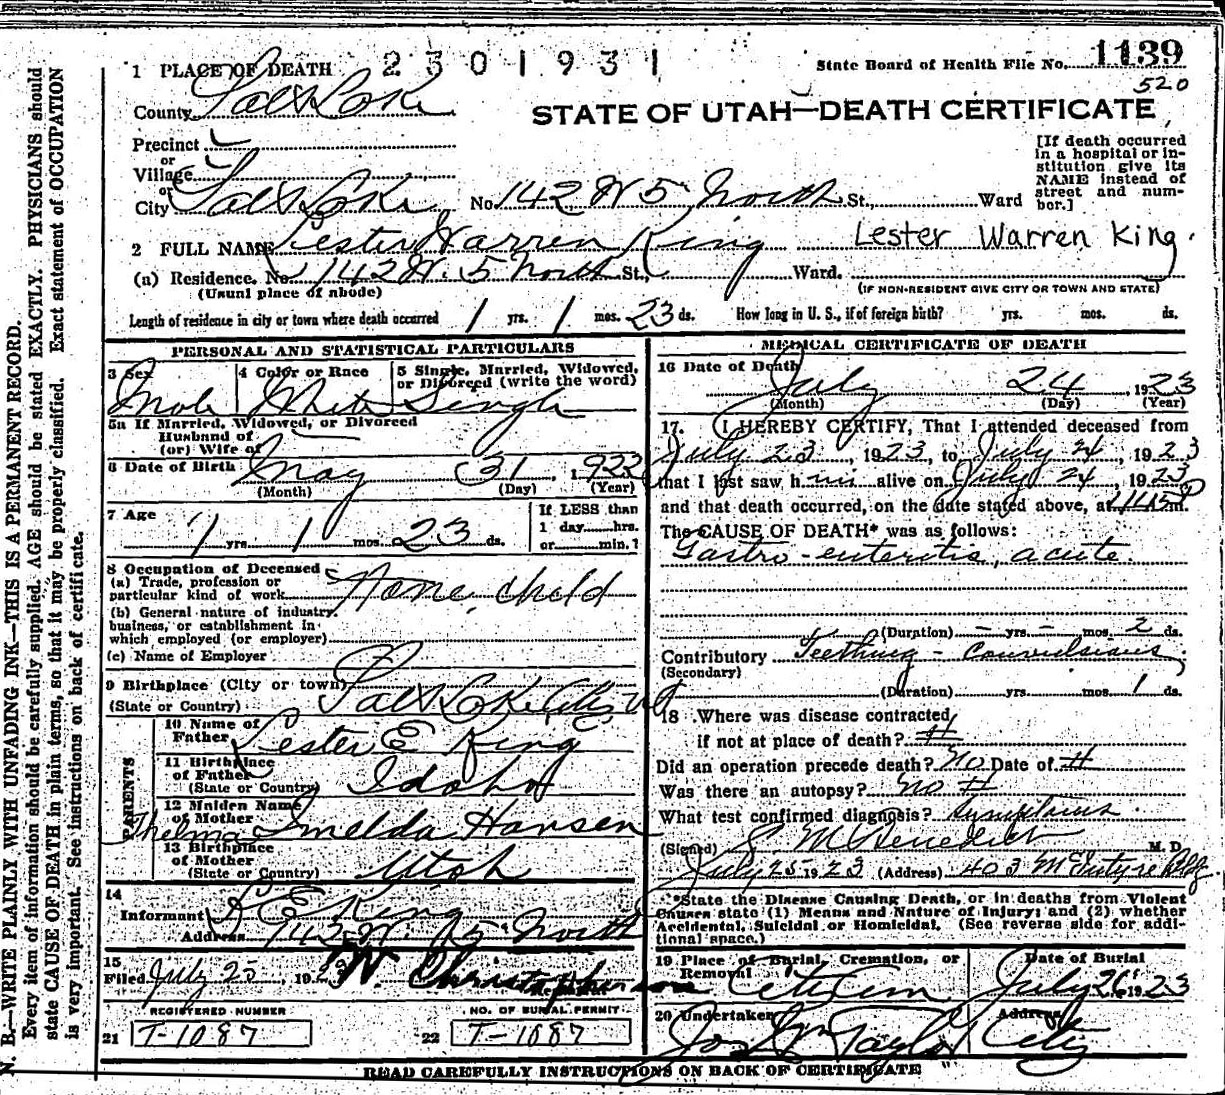 1 PLACE OF DEATH 2301931 State Board of Health File No. 1139
520
County Salt Lake
STATE OF UTAH—DEATH CERTIFICATE
Precinct
or
Village
or
City Salt Lake No. 142 W 5 North St., Ward
[If death occurred
in a hospital or in-
stitution give its
NAME instead of
street and num-
ber.]
2 FULL NAME Lester Warren King Lester Warren King.
(a) Residence. No. 142 W. 5 North St., Ward.
(Usual place of abode) (IF NON-RESIDENT GIVE CITY OR TOWN AND STATE)
Length of residence in city or town where death occurred 1 yrs. 1 mos. 23 ds. How long in U. S., if of foreign birth? yrs. mos. ds.
PERSONAL AND STATISTICAL PARTICULARS
3 Sex 4 Color or Race 5 Single, Married, Widowed,
or Divorced (write the word)
Male White Single
5a If Married, Widowed, or Divorced
Husband of
(or) Wife of
6 Date of Birth May 31, 1922
(Month) (Day) (Year)
7 Age If LESS than
1 day hrs.
1 yrs. 1 mos. 23 ds. or min.?
8 Occupation of Deceased
(a) Trade, profession or
particular kind of work None, child
(b) General nature of industry,
business, or establishment in
which employed (or employer)
(c) Name of Employer
9 Birthplace (City or town)
(State or Country) Salt Lake City, Ut
PARENTS
10 Name of
Father Lester E King
11 Birthplace
of Father
(State or Country) Idaho
12 Maiden Name
of Mother
Thelma Imelda Hansen
13 Birthplace
of Mother
(State or Country) Utah
14
Informant L E King
Address 142 W. 5 North
15
Filed July 25, 1923 W. Christopherson
REGISTERED NUMBER NO. OF BURIAL PERMIT
21 T-1087 22 T-1087
MEDICAL CERTIFICATE OF DEATH
16 Date of Death
July 24 1923
(Month) (Day) (Year)
17. I HEREBY CERTIFY, That I attended deceased from
July 23, 1923, to July 24, 1923
that I last saw him alive on July 24, 1923
and that death occurred, on the date stated above, at 11:15 P m.
The CAUSE OF DEATH* was as follows:
Gastro-enteritis, acute.
(Duration) - yrs. - mos. 2 ds.
Contributory Teething - Convulsions,
(Secondary)
(Duration) yrs. mos. 1 ds.
18 Where was disease contracted
if not at place of death? H
Did an operation precede death? No Date of H
Was there an autopsy? No H
What test confirmed diagnosis? Symptoms.
(Signed) McBenedict M. D.
July 25 1923 (Address) 403 McIntyre Bldg
*State the Disease Causing Death, or in deaths from Violent
Causes state (1) Means and Nature of Injury; and (2) whether
Accidental, Suicidal or Homicidal. (See reverse side for addi-
tional space.)
19 Place of Burial, Cremation, or
Removal City Cem
Date of Burial
July 26 1923
20 Undertaker Address
Jos Wm Taylor City
READ CAREFULLY INSTRUCTIONS ON BACK OF CERTIFICATE
N. B.—WRITE PLAINLY WITH UNFADING INK—THIS IS A PERMANENT RECORD.
Every item of information should be carefully supplied. AGE should be stated EXACTLY. PHYSICIANS should
state CAUSE OF DEATH in plain terms, so that it may be properly classified. Exact statement of OCCUPATION
is very important. See instructions on back of certificate.